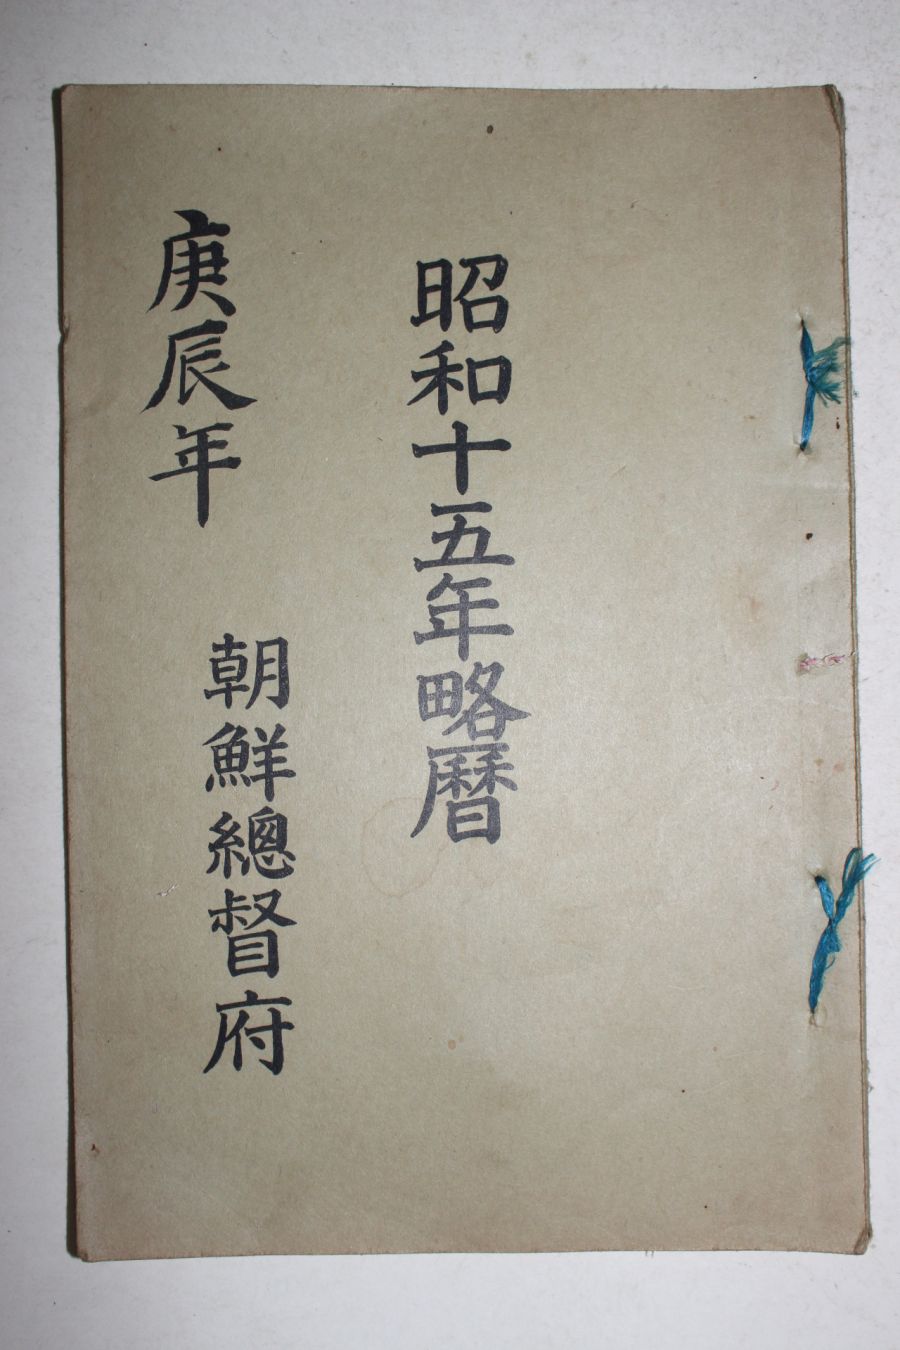 昭和十五年略暦
朝鮮總督府
庚辰年